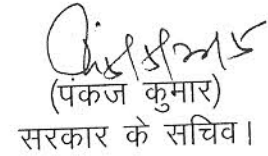 (पंकज कुमार)
सरकार के सचिव।